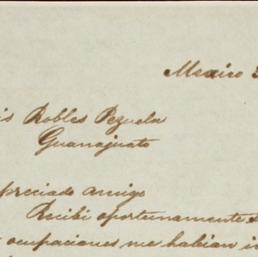 Mexico
is Robles Pezuela
Guanajuato
preciado amigo
Recibi oportunamente
ocupaciones me habian